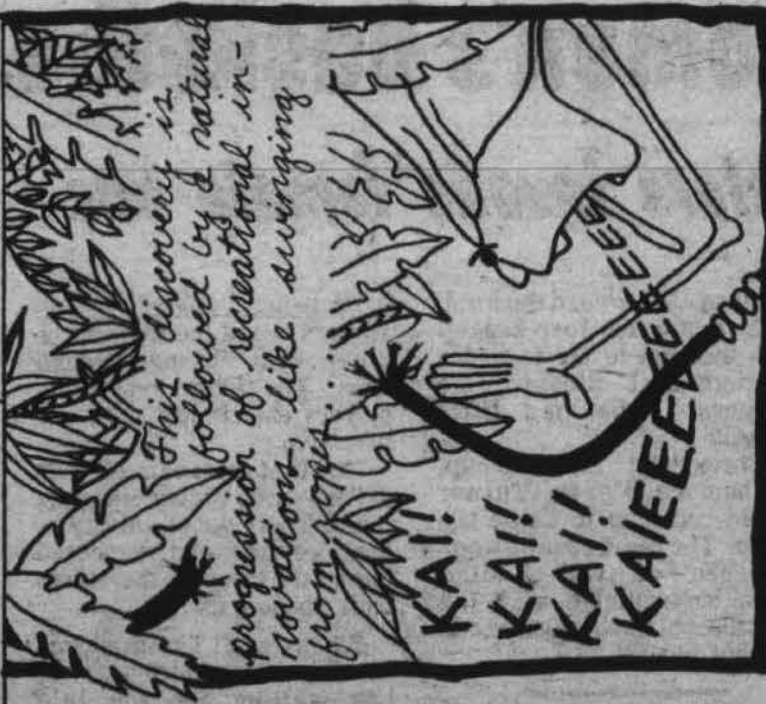 This discovery is
followed by a natural
progression of recreational in-
novations, like swinging
from ropes....
KAI!
KAI!
KAI!
KAIEEEEEEEEEEE